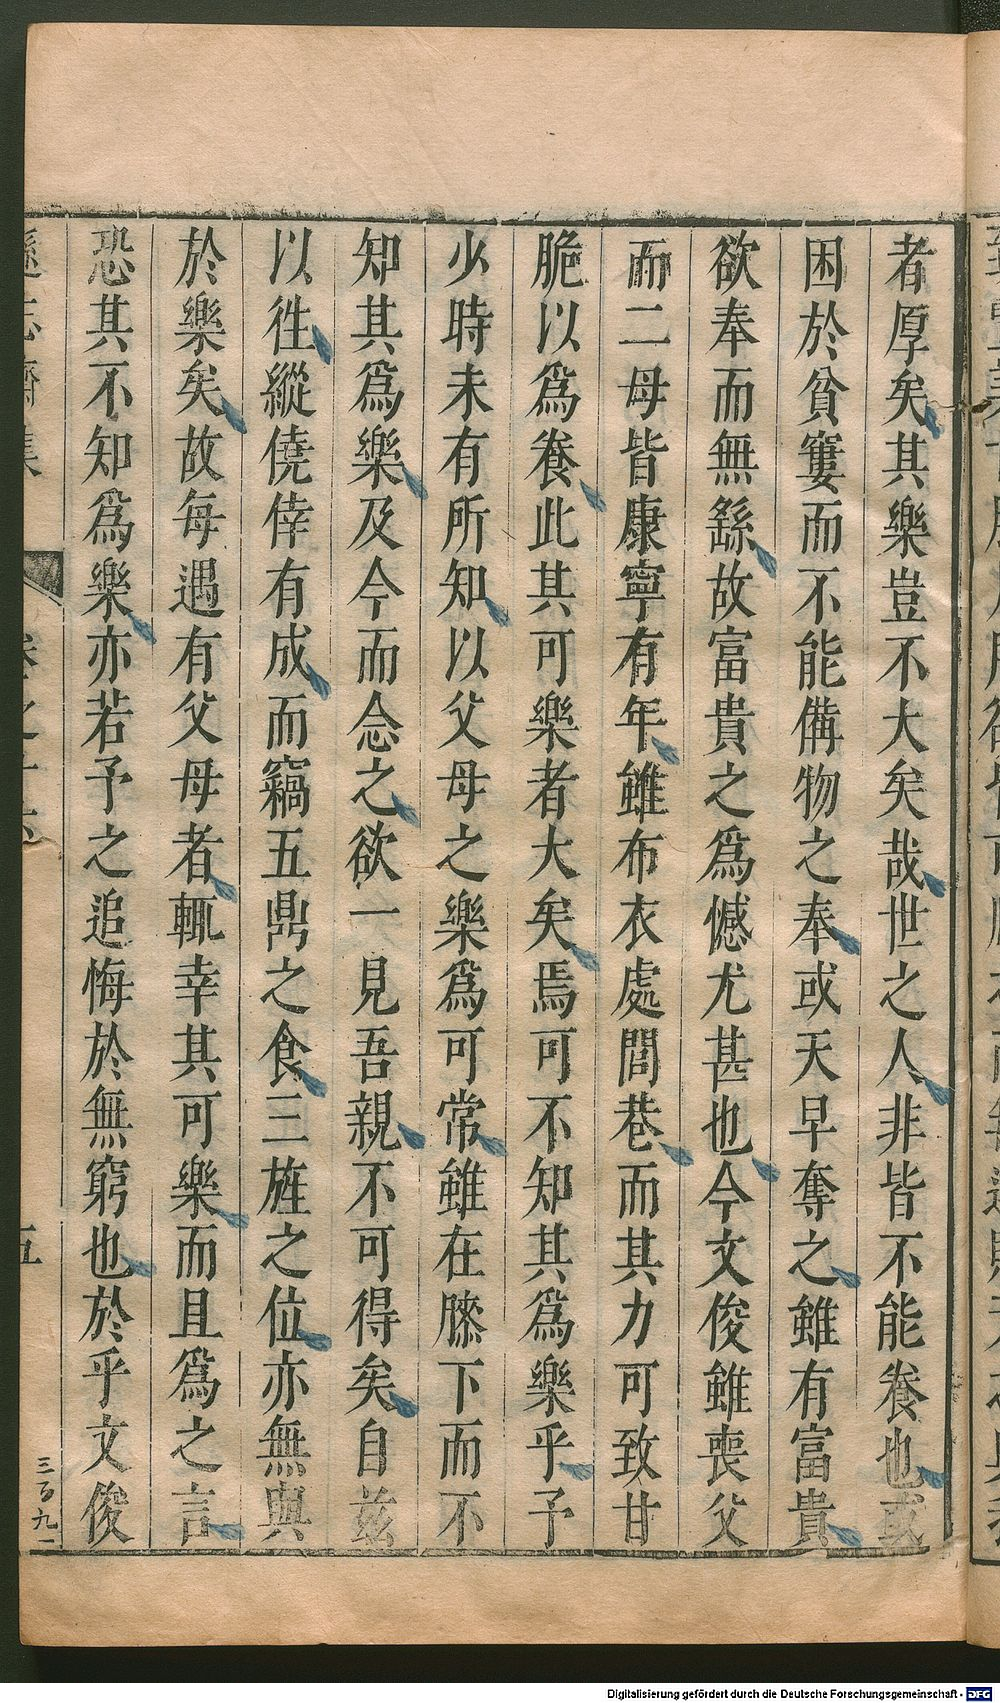 者厚矣其樂豈不大矣哉世之人非皆不能養也或
困於貧窶而不能備物之奉或天早奪之雖有富貴
欲奉而無繇故富貴之爲憾尤甚也今文俊雖喪父
而二母皆康寧有年雖布衣處閭巷而其力可致甘
脆以爲養此其可樂者大矣焉可不知其爲樂乎予
少時未有所知以父母之樂爲可常雖在膝下而不
知其爲樂及今而念之欲一見吾親不可得矣自茲
以徃縱僥倖有成而竊五鼎之食三旌之位亦無與
於樂矣故每遇有父母者輒幸其可樂而且爲之言
恐其不知爲樂亦若予之追悔於無窮也於乎文俊
遜志齋集
卷之十六
五
三百九一
Digitalisierung gefördert durch die Deutsche Forschungsgemeinschaft - DFG